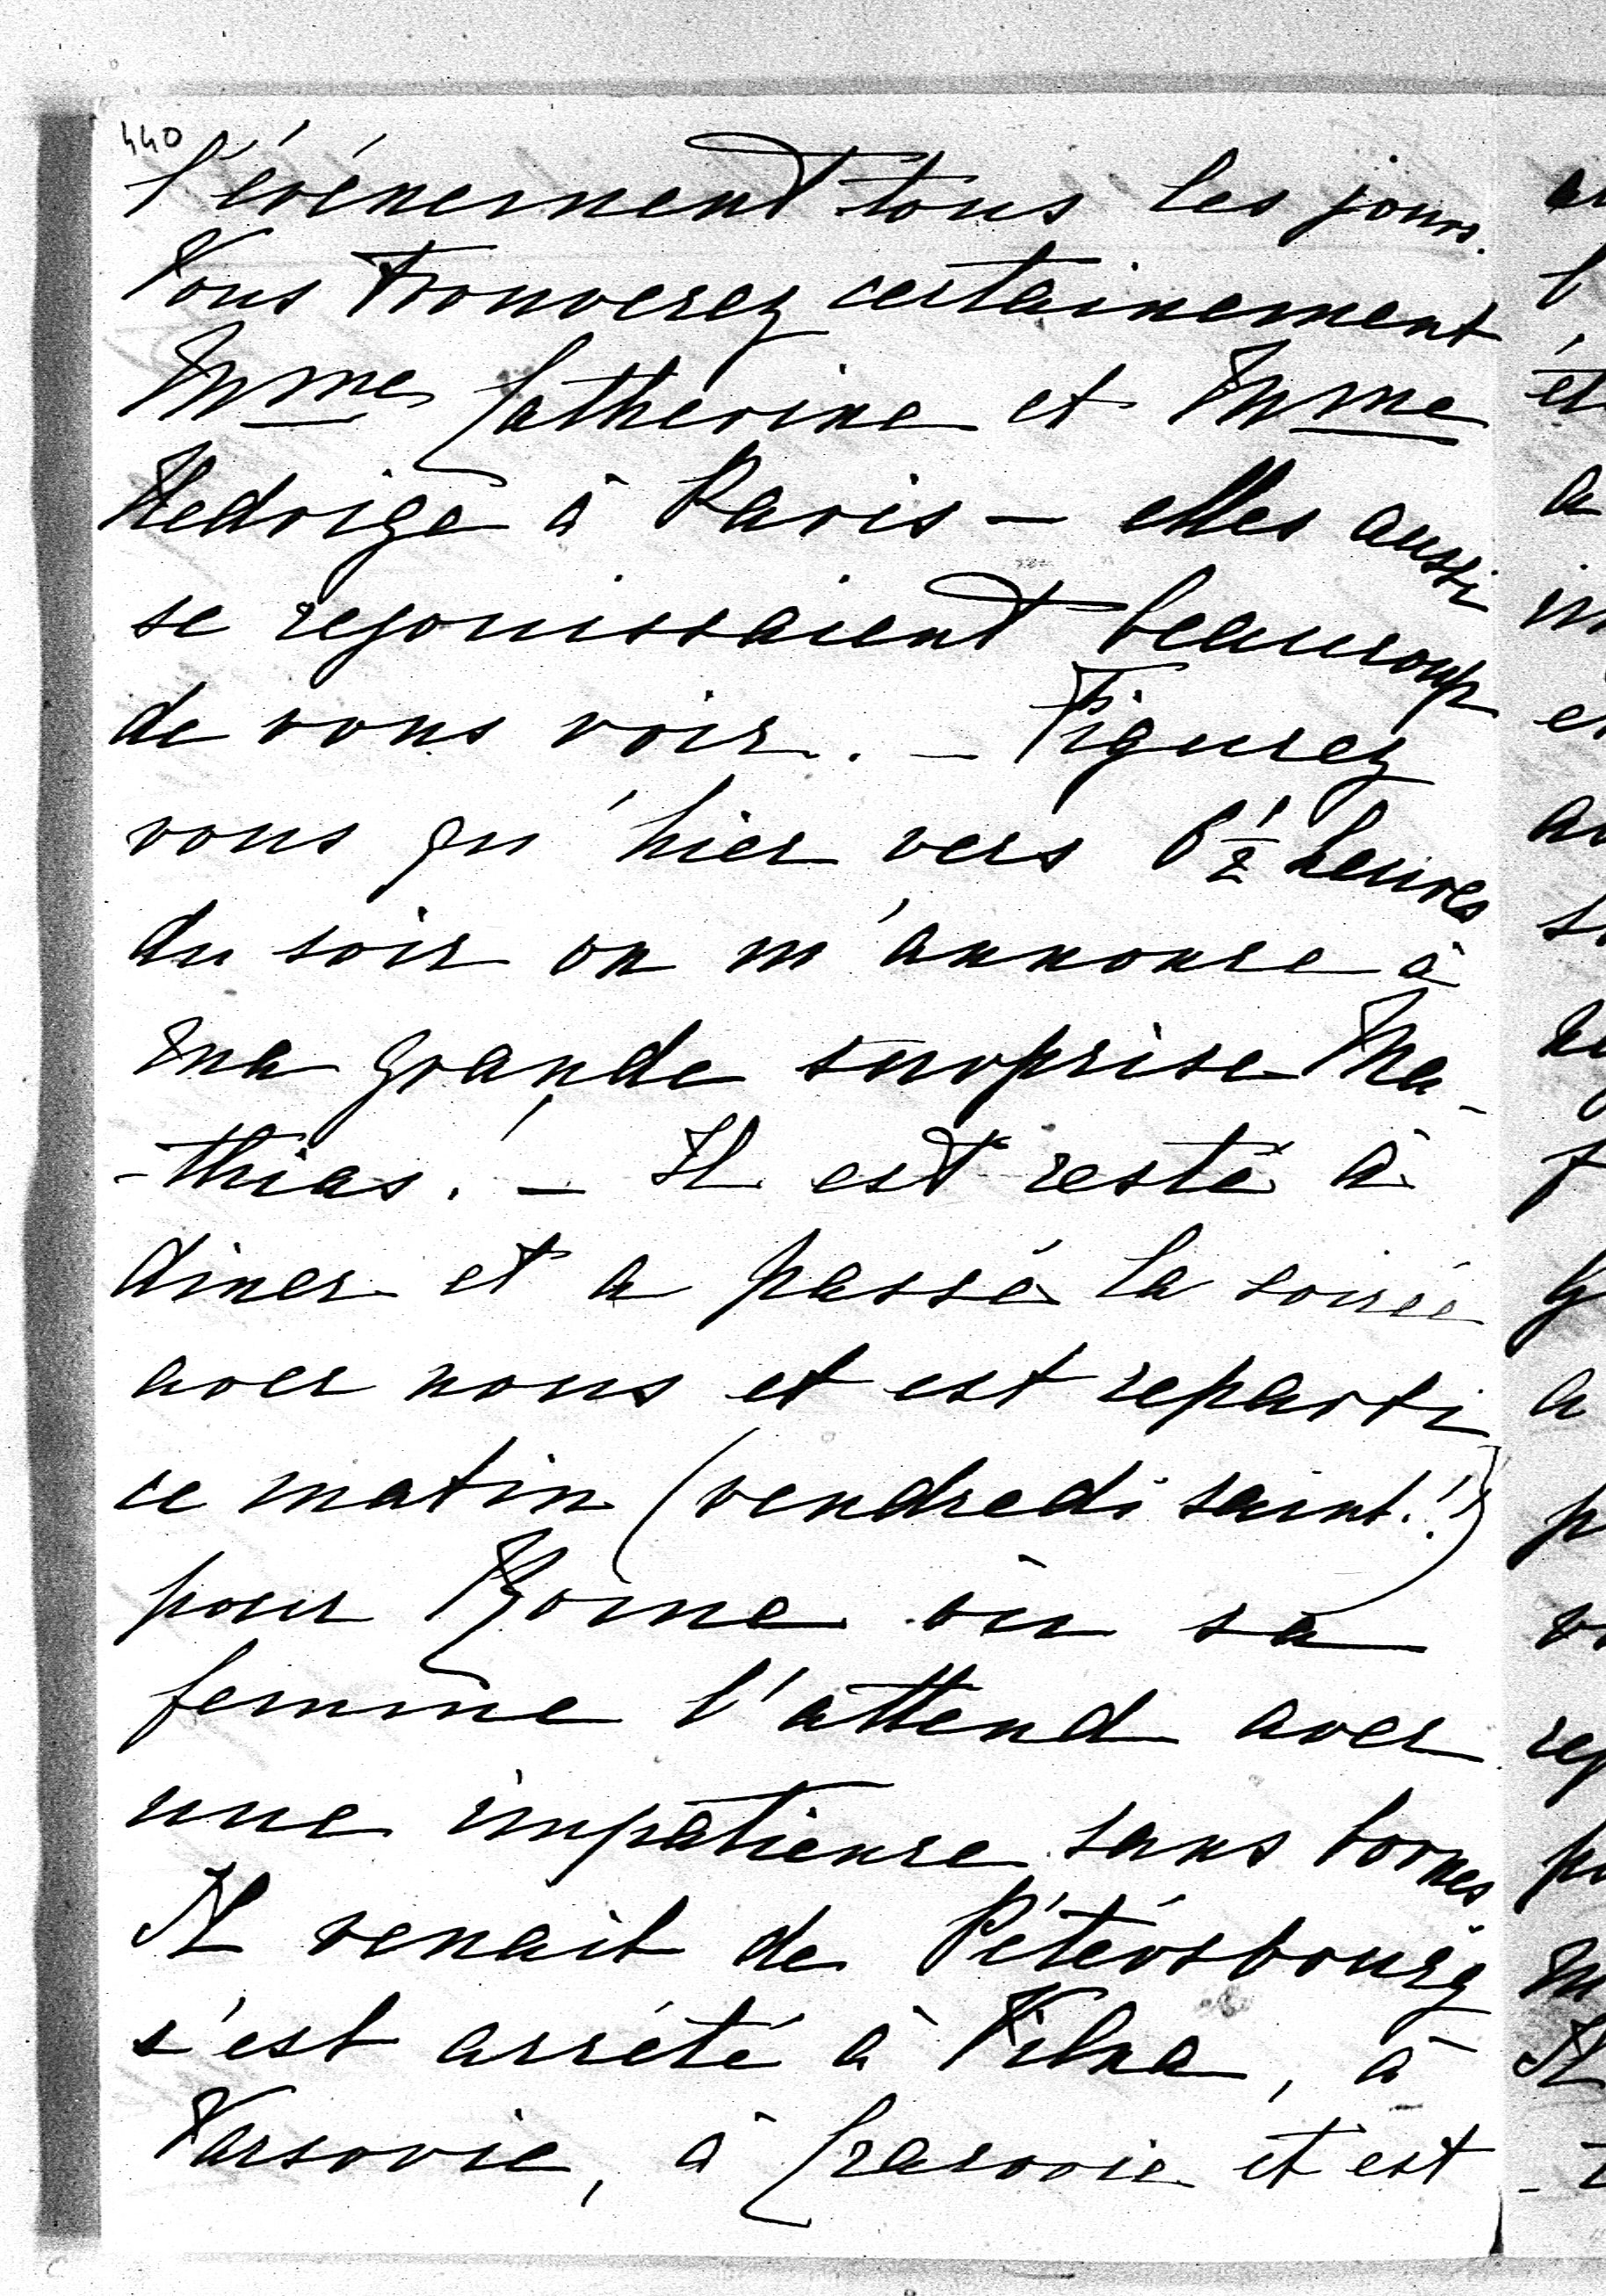 440
l'événement tous les jours.
Vous trouverez certainement
Mme Catherine et Mme
Hedvige à Paris — elles aussi
se rejouissaient beaucoup
de vous voir. — Figurez
vous qu'hier vers 6 1/2 heures
du soir on m'annonce à
ma grande surprise Ma-
-thias! — Il est resté à
diner et a passé la soirée
avec nous et est reparti
ce matin (vendredi saint!!)
pour Rome où sa
femme l'attend avec
une impatience sans bornes
Il venait de Pétérsbourg
s'est arrété à Vilna, à
Varsovie, à Cracovie et est